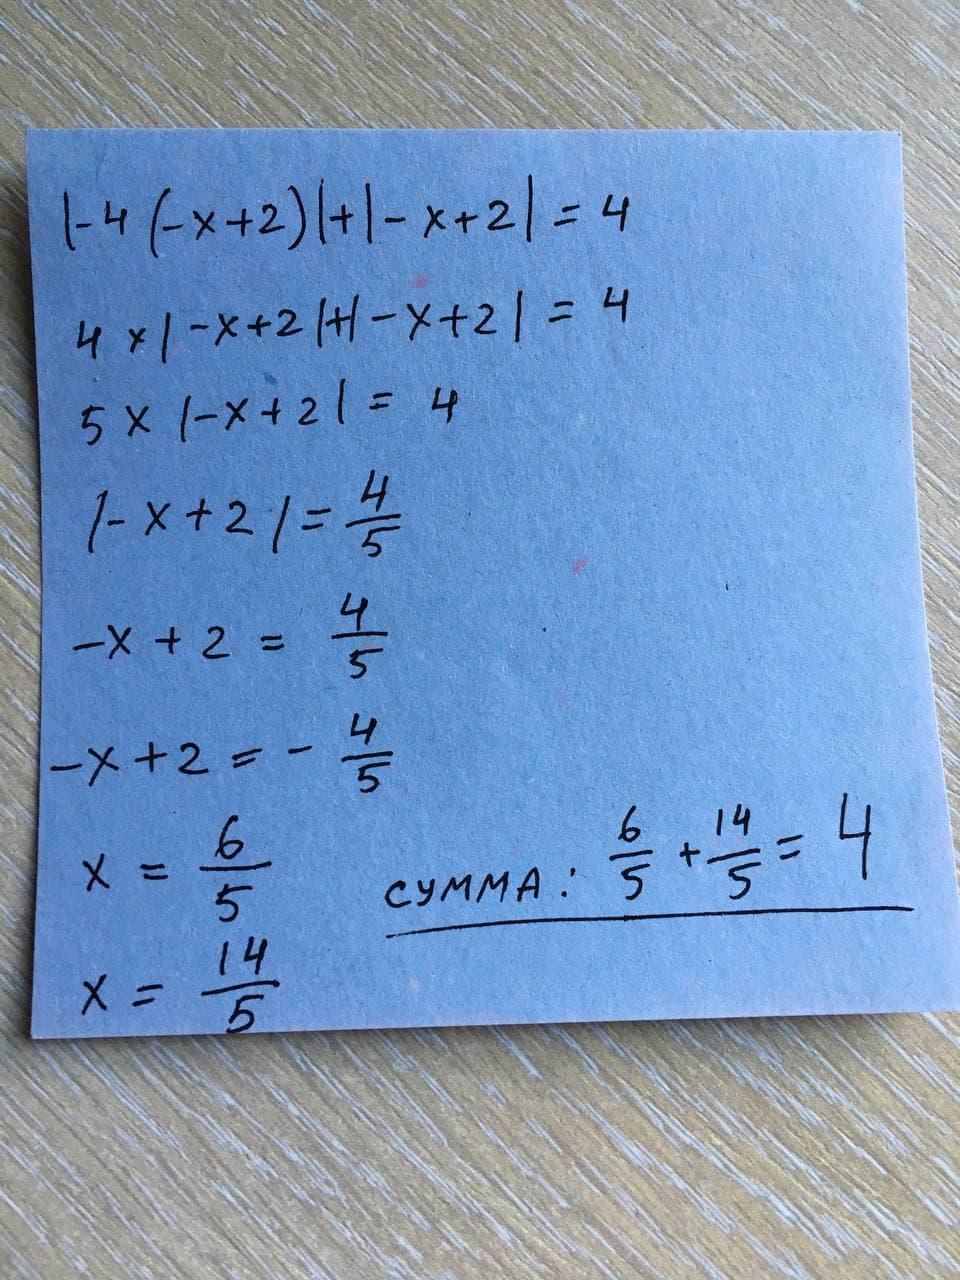 |-4(-x+2)|+|-x+2|=4
4×|-x+2|+|-x+2|=4
5×|-x+2|=4
|-x+2|=4/5
-x+2=4/5
-x+2=-4/5
x=6/5
x=14/5
СУММА: 6/5+14/5=4